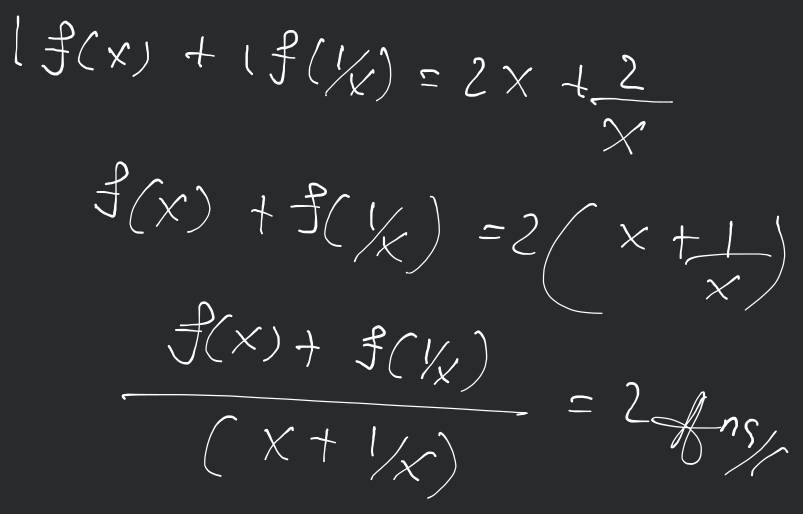 1 f(x) + 1 f(1/x) = 2x + 2/x
f(x) + f(1/x) = 2(x + 1/x)
(f(x) + f(1/x))/(x + 1/x) = 2 Ans//